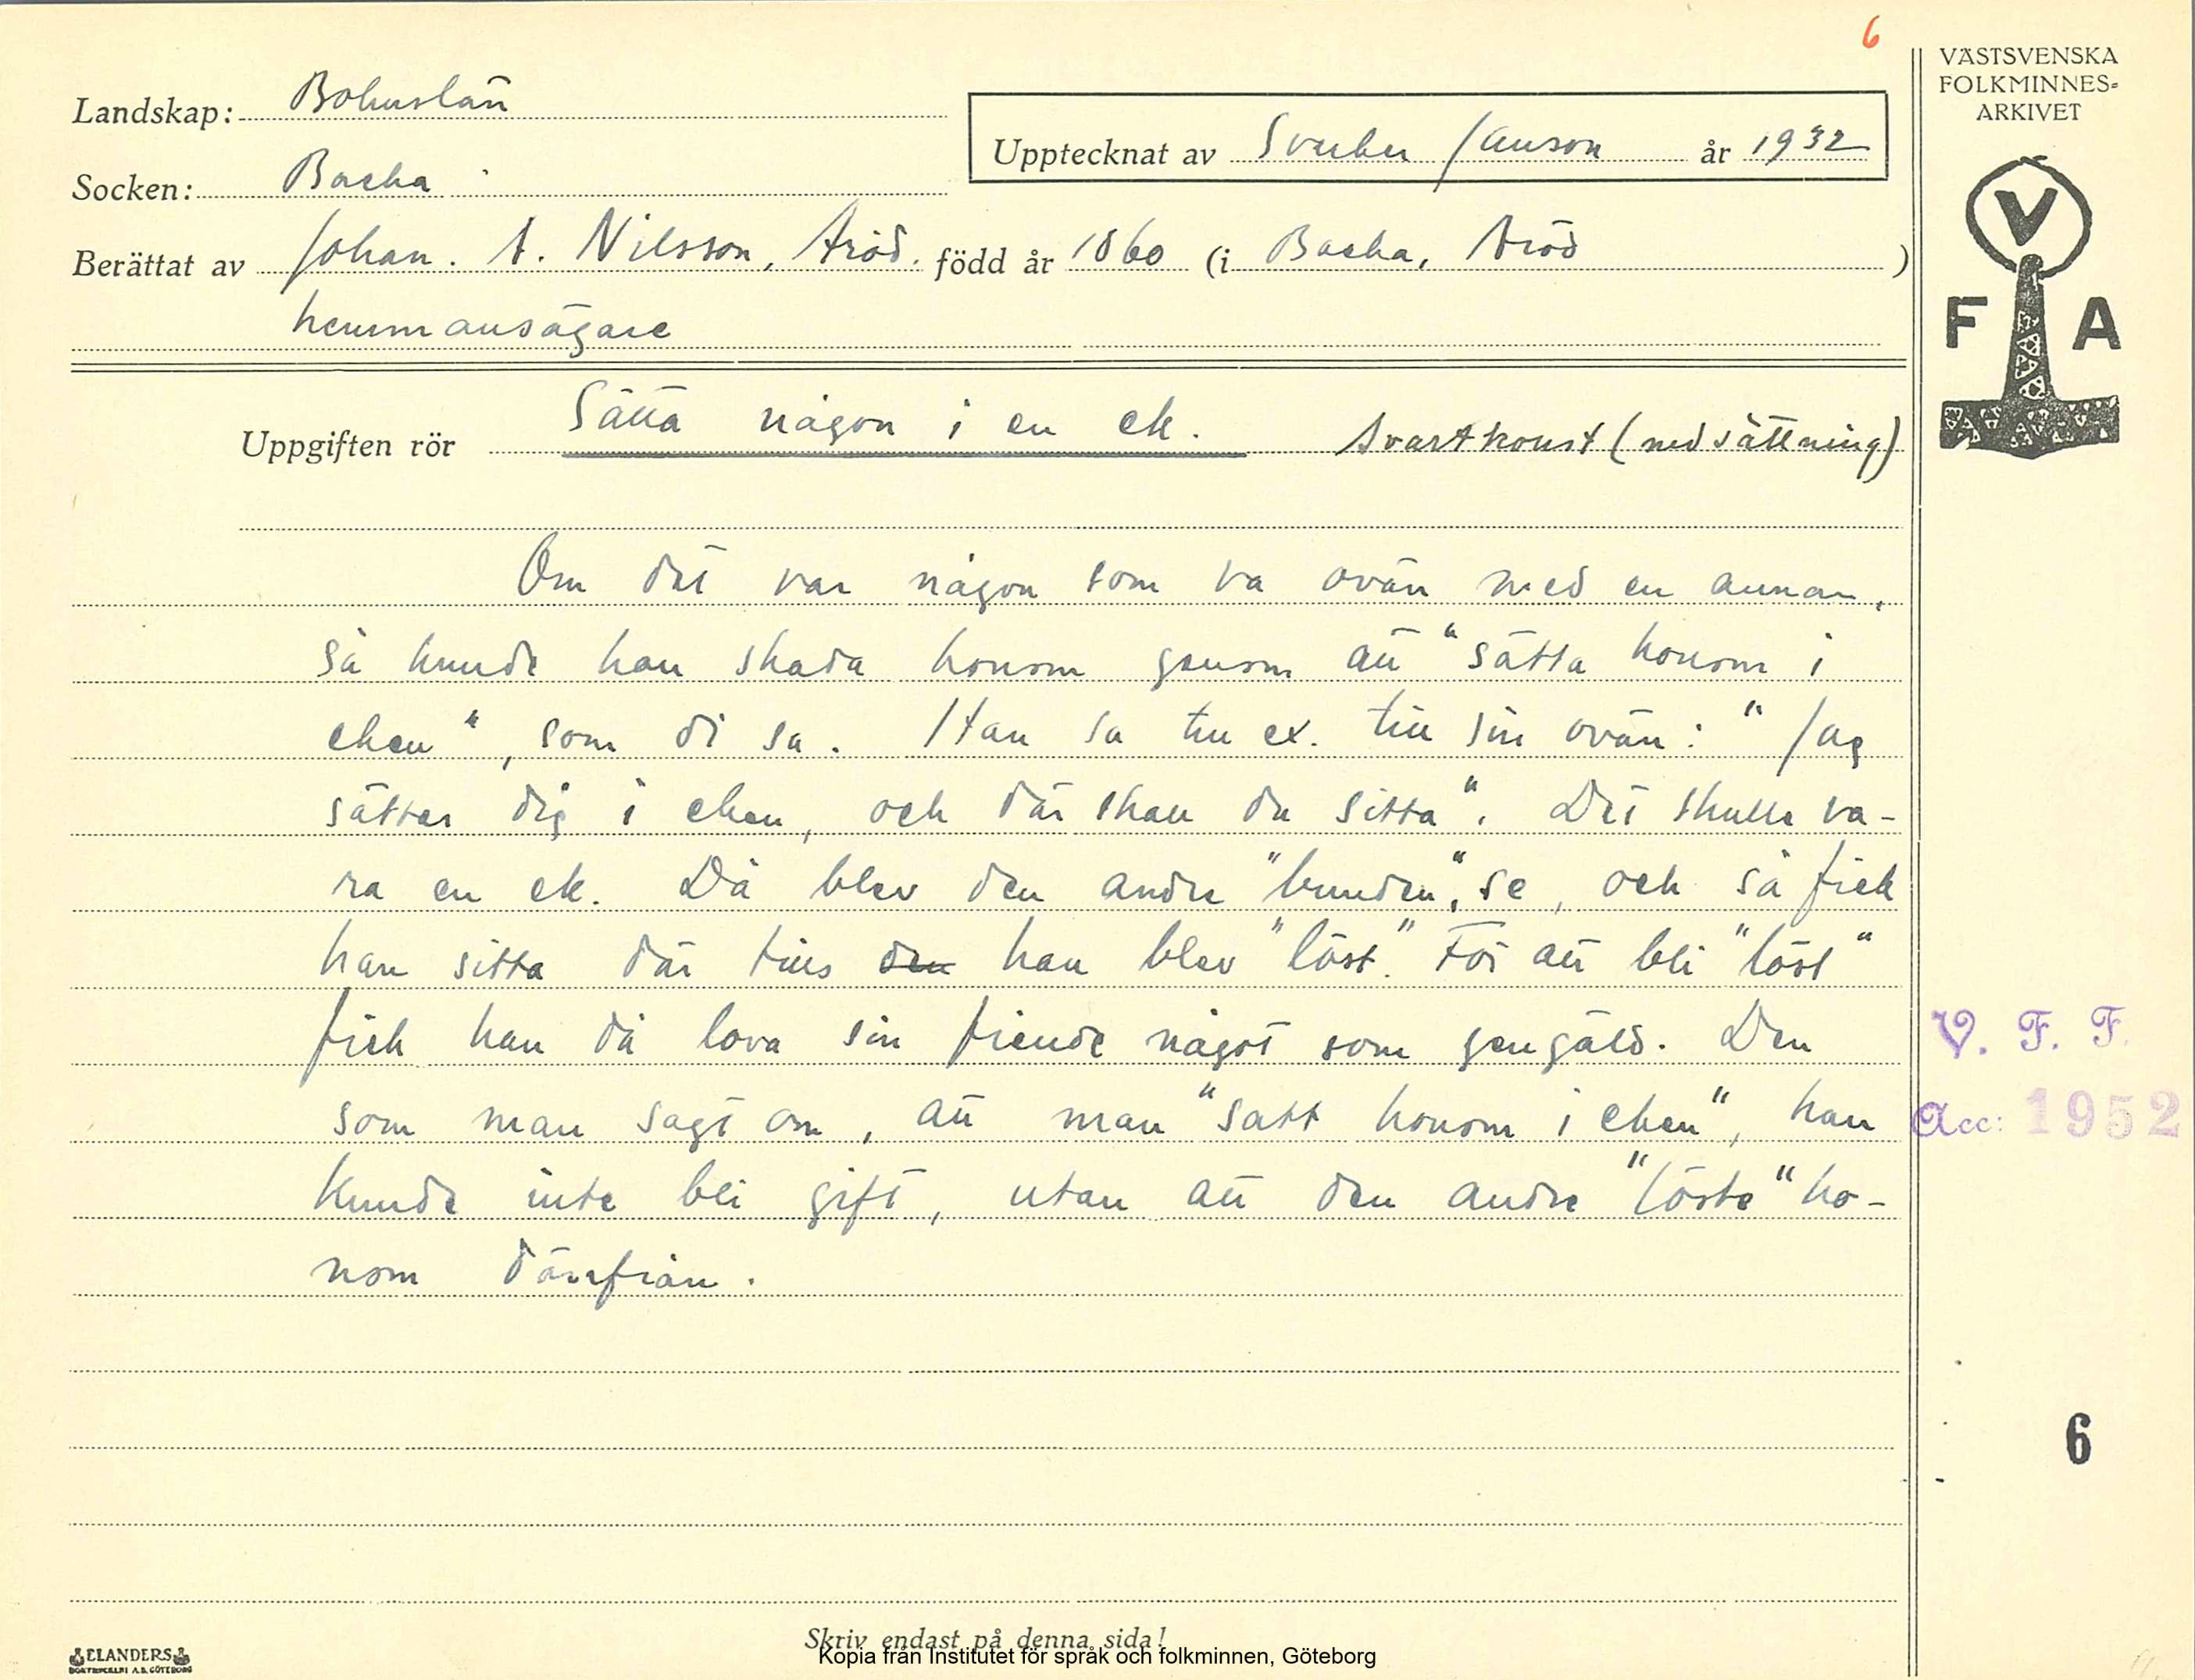 6
VÄSTSVENSKA
FOLKMINNES=
ARKIVET
Landskap: Bohuslän
Upptecknat av Sverker Janson år 1932
Socken: Backa
Berättat av Johan. A. Nilsson, Aröd. född år 1860 (i Backa, Aröd)
hemmansägare
V
F A
Uppgiften rör Sätta någon i en ek. Svartkonst (nedsättning)
Om det var någon som va ovän med en annan,
så kunde han skada honom genom att "sätta honom i
eken", som di sa. Han sa till ex. till sin ovän: "Jag
sätter dig i eken, och där skall du sitta". Det skulle va-
ra en ek. Då blev den andre "bunden", se, och så fick
han sitta där tills den han blev "löst". För att bli "löst"
fick han då lova sin fiende något som gengäld. Den
som man sagt om, att man "satt honom i eken", han
kunde inte bli gift, utan att den andre "löste" ho-
nom därifrån.
V. F. F.
Acc: 1952
6
Skriv endast på denna sida!
Kopia från Institutet för språk och folkminnen, Göteborg
ELANDERS
BOKTRYCKERI A.B. GÖTEBORG